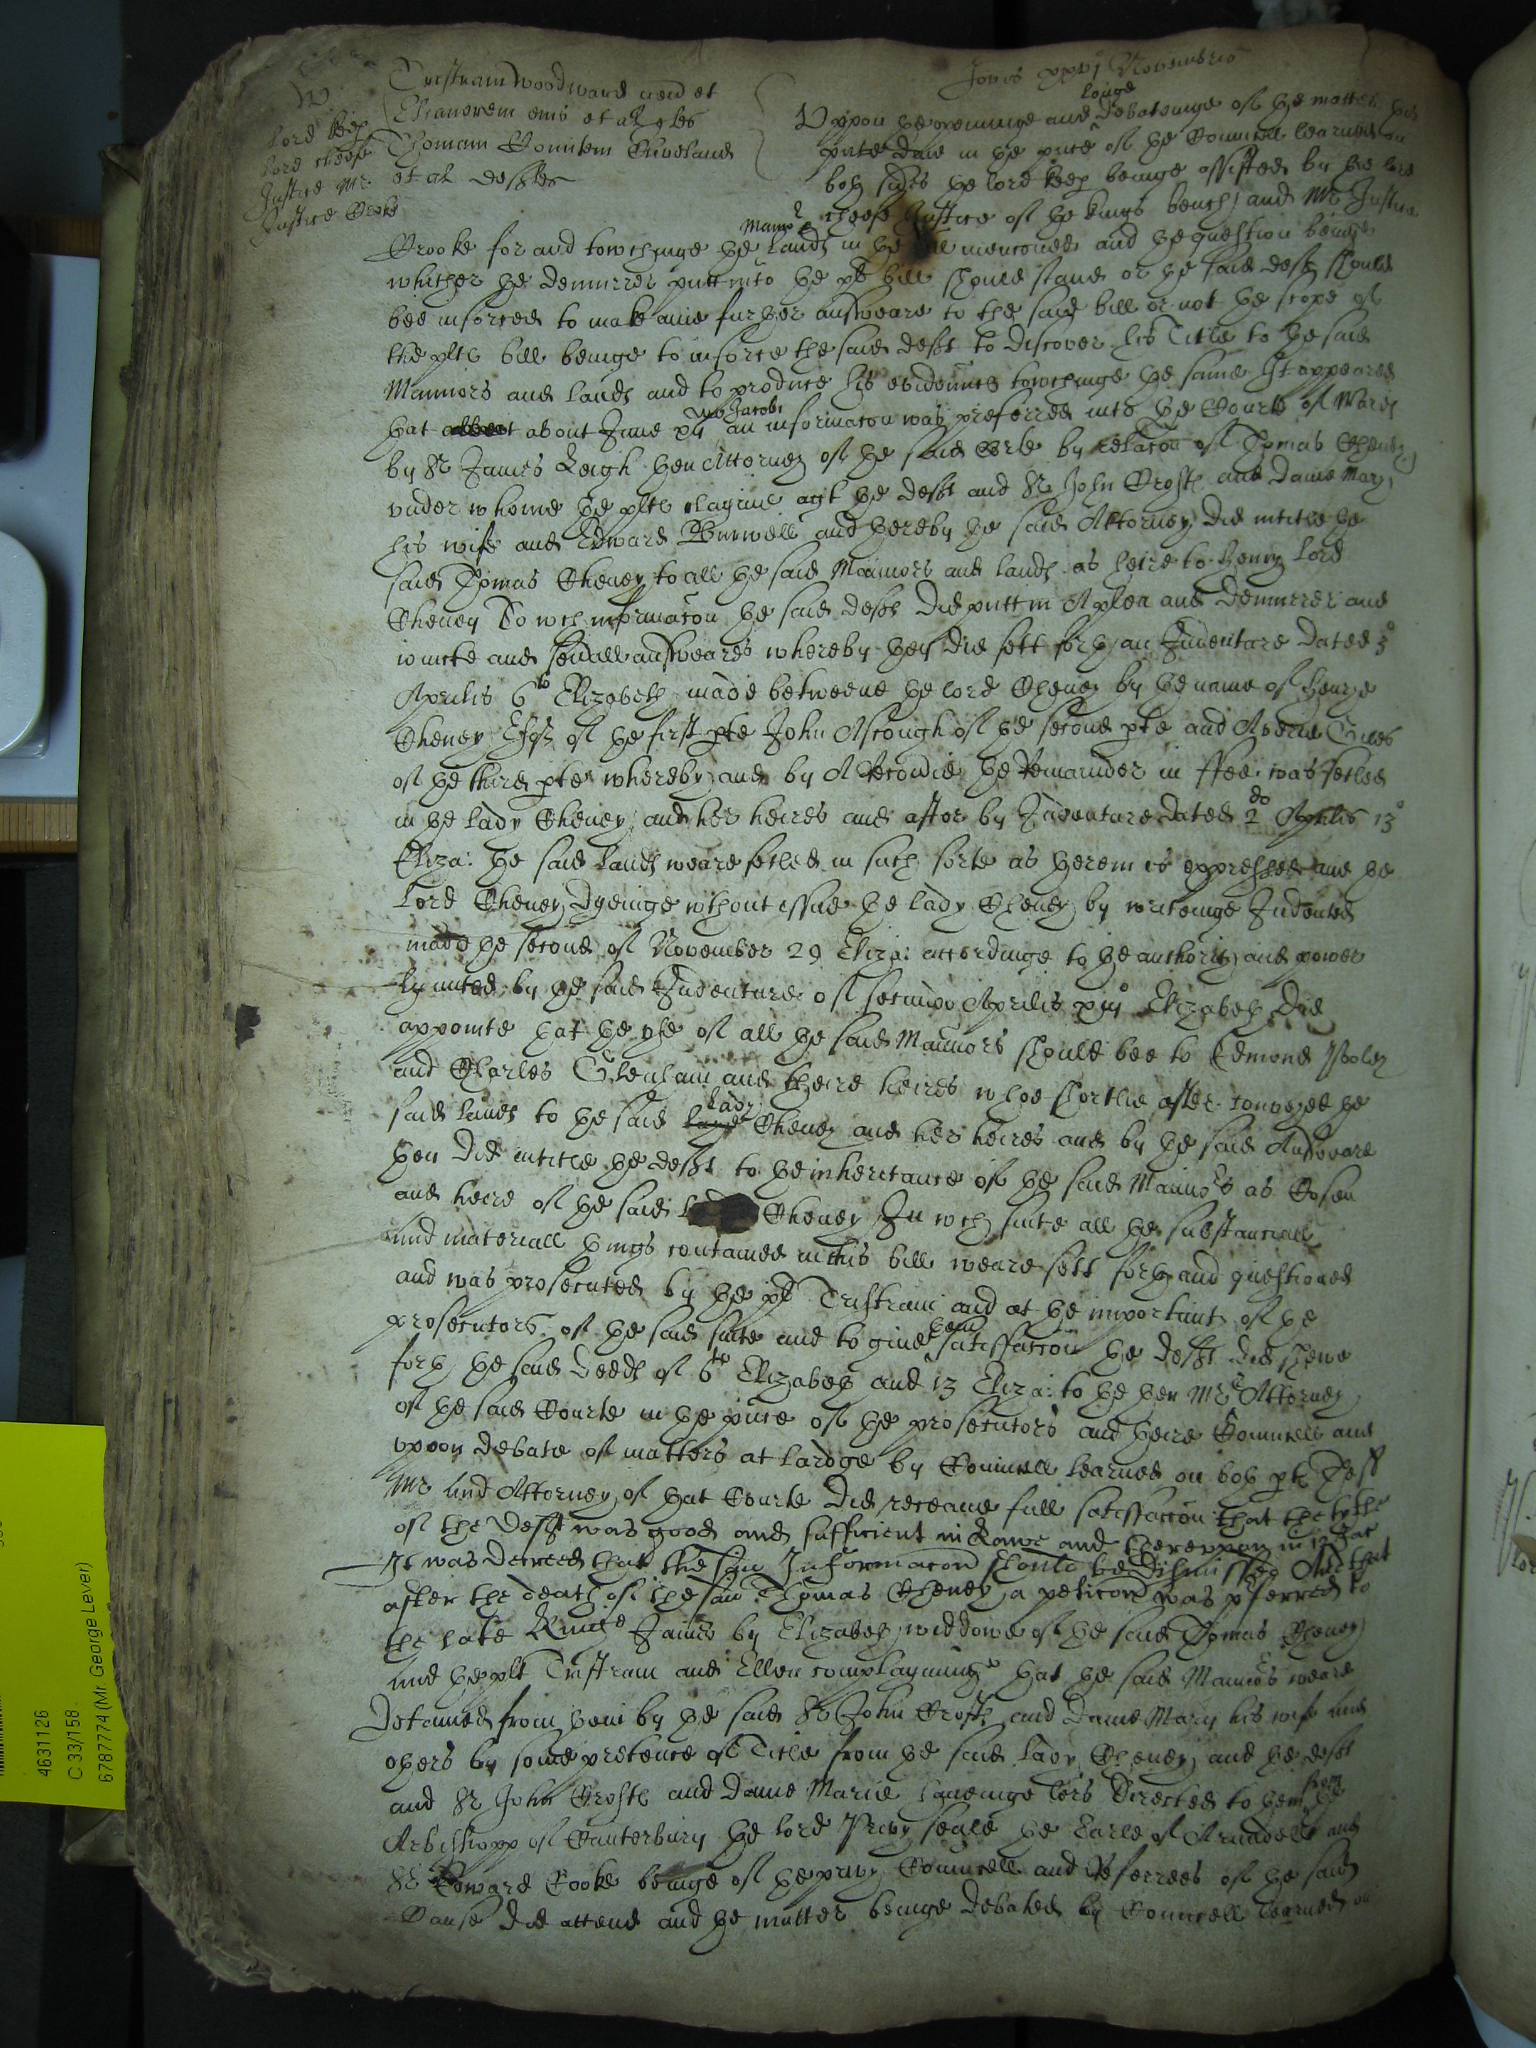 Jovis xxvj Novembris
W
Lord keep
lord cheefe
Justice Mr
Justice Croke
Tristram Woodward gen et
Elianorem eius et al qles
Thomam Comitem Cleveland
et al deftes
longe
Uppon the openinge and debateinge of the matter this
pnte daie in the pnce of the Councell learned on
both sides the lord keep beinge assisted by the lord
cheefe Justice of the kings bench and Mr Justice
Mannors &
Crooke for and towchinge the lands in the bill mencioned and the question beinge
whither the demurrer putt into the plts bill should stand or the said deft should
bee inforced to make anie further answeare to the said bill or not the scope of
the plts bill beinge to inforce the said deft to discover his Title to the said
Mannors and lands and to produce his evidences towchinge the same It appeared
nono Jacobi
that about June an informacon was preferred into the Courte of Wards
by Sr James Leigh then Attorney of the said Corte by relacon of Thomas Cheney
under whome the plts clayme agt the deft and Sr John Crofts and Dame Mary
his wife and Edward Burwell and thereby the said Attorney did intitle the
said Thomas Cheney to all the said Mannors and lands as heire to Henry lord
Cheney To wch informacon the said defts did putt in A plea and demurrer and
ioincte and severall answeares whereby they did sett forth an Indenture dated 3o
Aprilis 6to Elizabeth made betweene the lord Cheney by the name of Henry
Cheney Esqr of the first pte John Ascough of the second pte and
of the third pte whereby and by A Recoverie the Remainder in ffee was setled
in the lady Cheney and her heires and after by Indenture dated 2do Aprilis 13o
Eliza: the said lands weare setled in such sorte as therein is expressed and the
Lord Cheney dyeinge wthout issue the lady Cheney by writeinge Indented
made the second of November 29 Eliza: accordinge to the authority and power
lymited by the said Indenture of secundo Aprilis xiijo Elizabeth did
appointe that the use of all the said Mannors should bee to Edmond Pooley
and Charles and theire heires whoe shortlie after conveyed the
lady
said lands to the said Cheney and her heires and by the said Answeare
then did intitle the deft to the inheritance of the said Mannors as Cosen
and heire of the said Cheney In wch suite all the substanciall
and materiall things contained in this bill weare sett forth and questioned
and was prosecuted by the plt Tristram and at the importunity of the
prosecutors of the said suite and to give them satisfaccon the deft did shewe
forth the said deeds of 6to Elizabeth and 13 Eliza: to the then Mr Attorney
of the said Courte in the pnce of the prosecutors and theire Councell and
uppon debate of matters at lardge by Councell learned on both pts
Mr Attorney of that Courte did receave full satisfaccon that the tytle
of the deft was good and sufficient in Lawe and thereuppon in that
It was decreed that the said Informacon should be dismissed And that
after the death of the said Thomas Cheney a peticon was pferred to
the late Kinge James by Elizabeth widdowe of the said Thomas Cheney
and the plt Tristram and Ellen complayninge that the said Mannors weare
detained from them by the said Sr John Crofts and Dame Mary his wife and
others by some pretence of Title from the said lady Cheney and the deft
and Sr John Crofts and Dame Marie haveinge lres directed to them from the
Arbishopp of Canterbury the lord Privy seale the Earle of Arundell and
Sr Edward Cooke beinge of the privy Councell and Referrees of the said
Cause did attend and the matter beinge debated by Councell learned on
4631126
C 33/158
6787774 (Mr. George Lever)